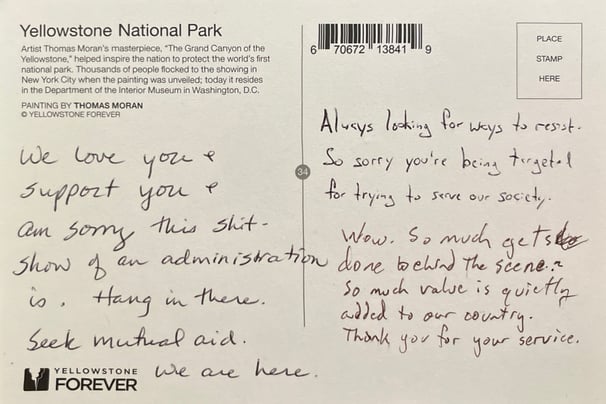 Yellowstone National Park
Artist Thomas Moran's masterpiece, "The Grand Canyon of the
Yellowstone," helped inspire the nation to protect the world's first
national park. Thousands of people flocked to the showing in
New York City when the painting was unveiled; today it resides
in the Department of the Interior Museum in Washington, D.C.
PAINTING BY THOMAS MORAN
© YELLOWSTONE FOREVER
We love you &
support you &
am sorry this shit-
show of an administration
is. Hang in there.
Seek mutual aid.
We are here.
YELLOWSTONE
FOREVER
6 70672 13841 9
34
PLACE
STAMP
HERE
Always looking for ways to resist.
So sorry you're being targeted
for trying to serve our society.
Wow. So much gets
done behind the scene.
So much value is quietly
added to our country.
Thank you for your service.